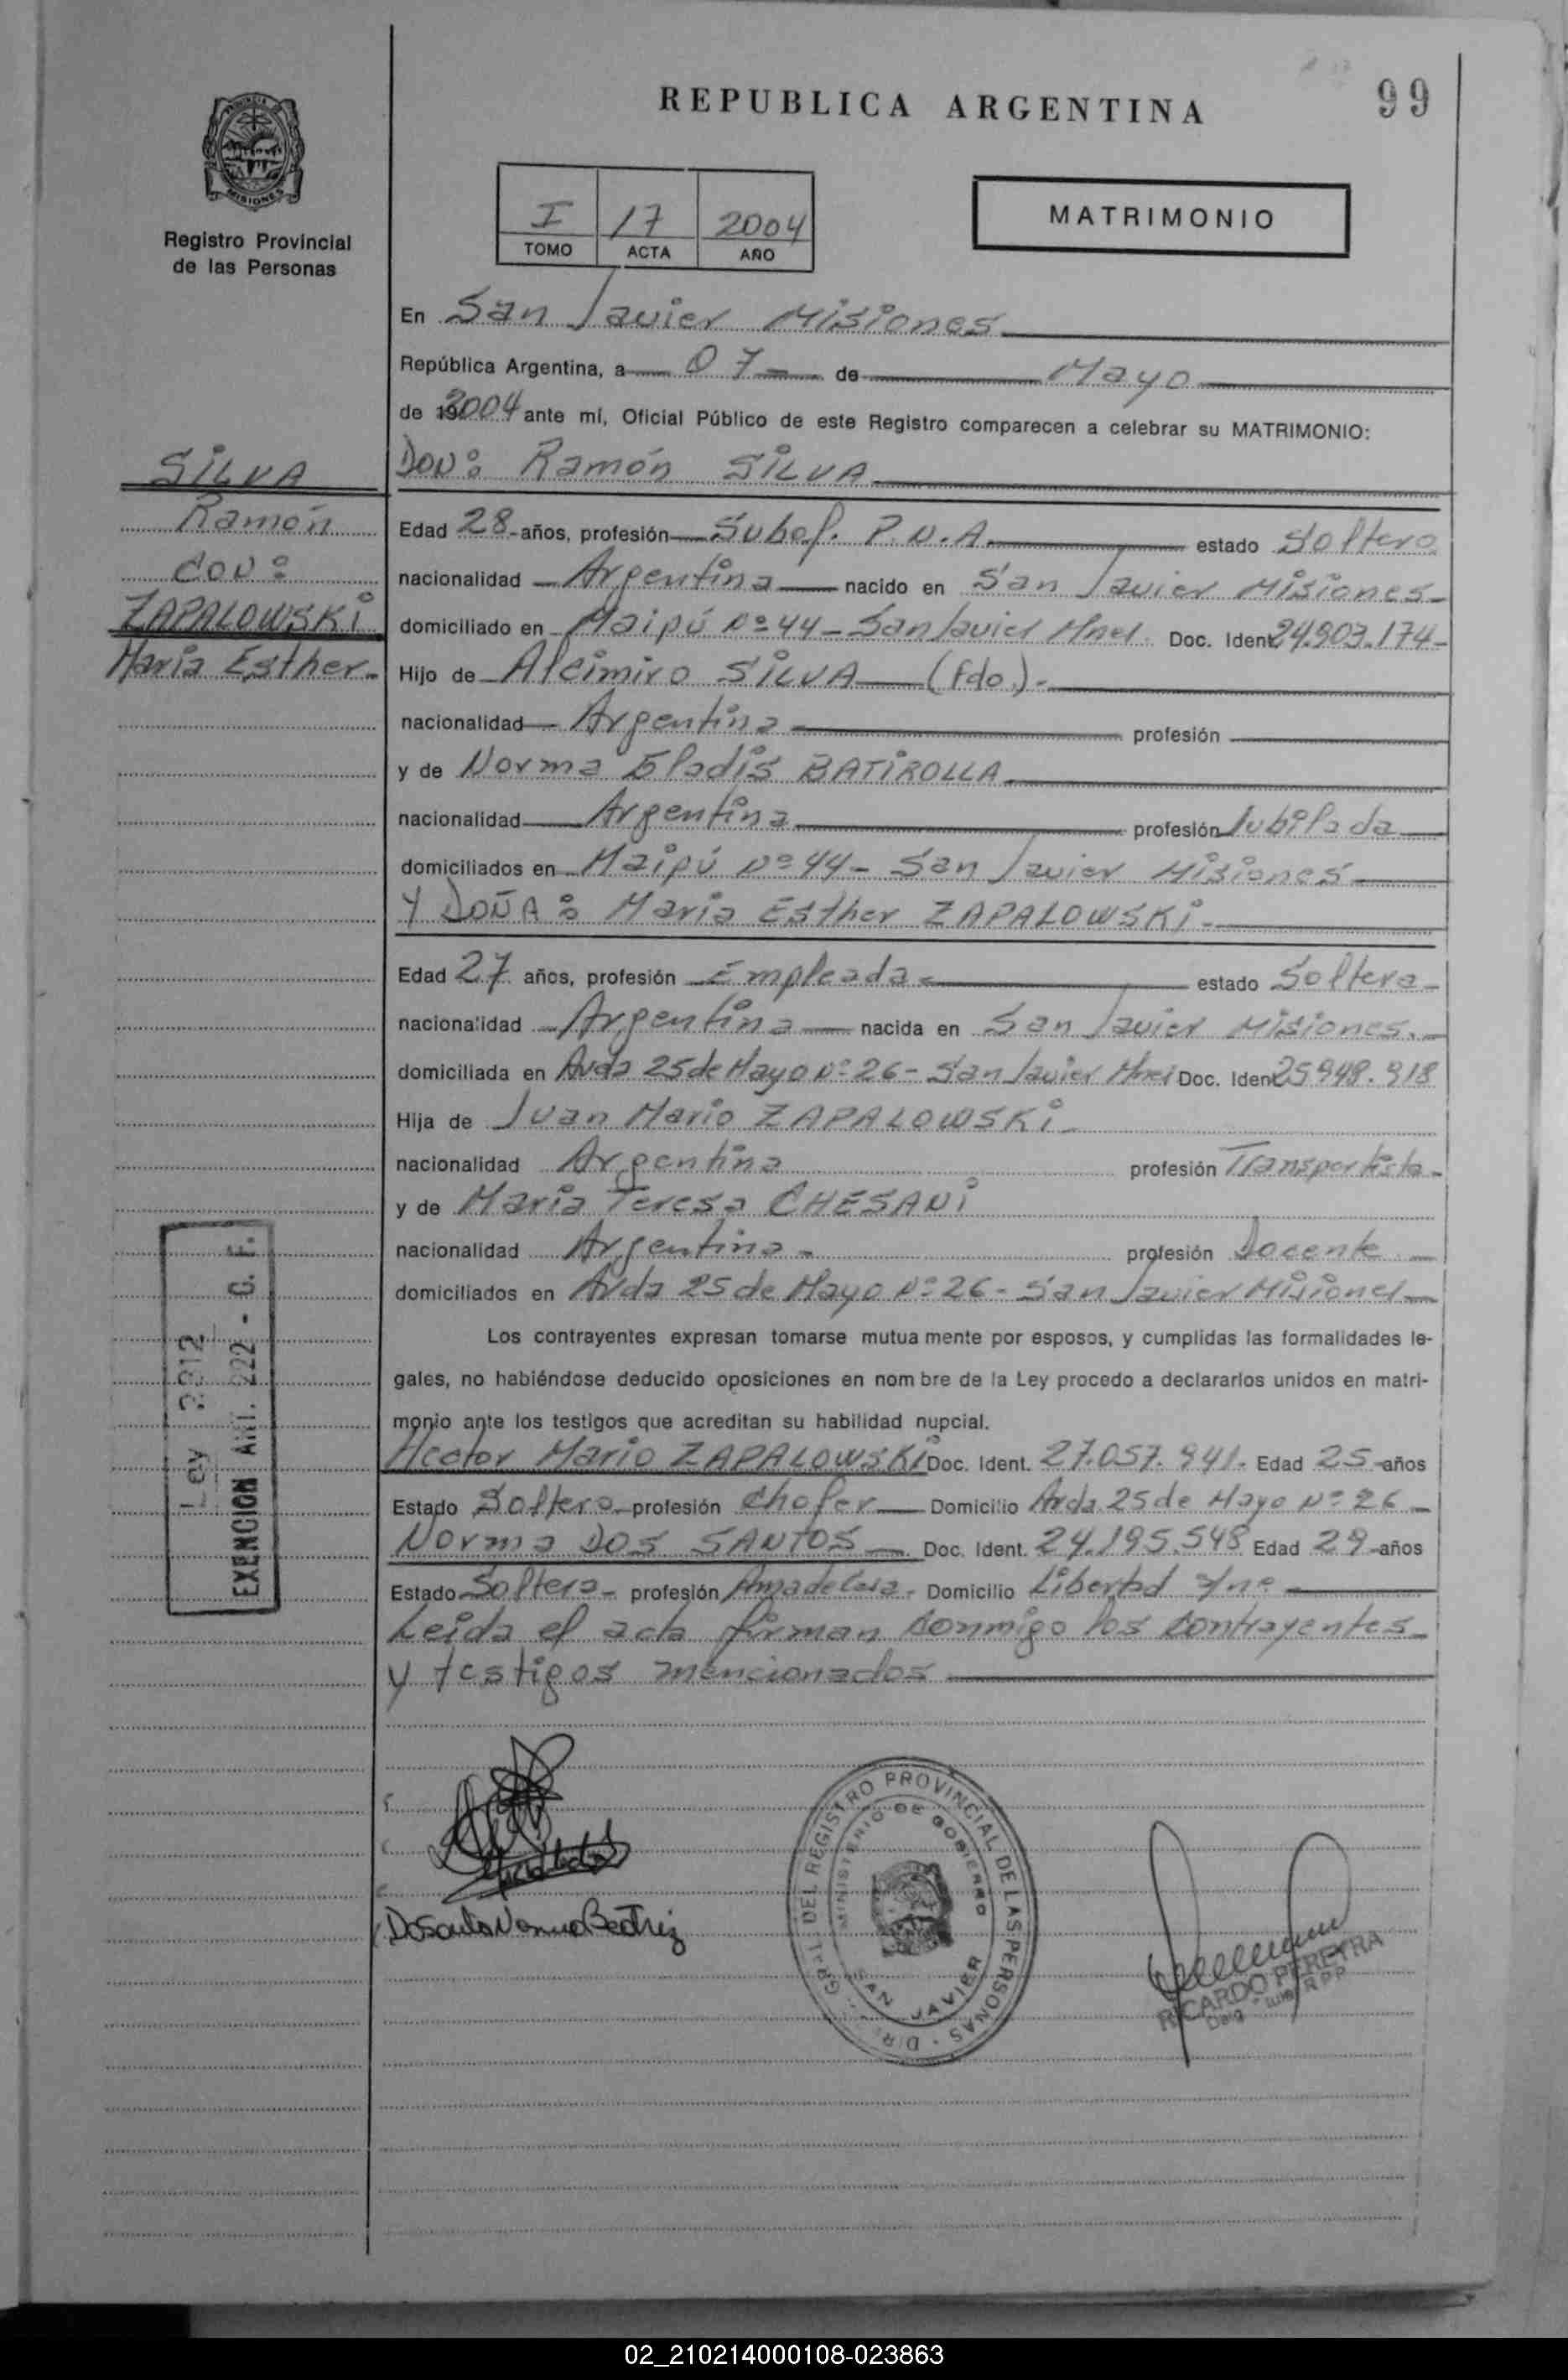 REPUBLICA ARGENTINA
99
MISIONES
Registro Provincial
de las Personas
I 17 2004
TOMO ACTA AÑO
MATRIMONIO
En San Javier Misiones
República Argentina, a 07 de Mayo
de 2004 ante mí, Oficial Público de este Registro comparecen a celebrar su MATRIMONIO:
SILVA
Ramón
CON:
ZAPALOWSKI
Maria Esther.
DON: Ramón SILVA
Edad 28 años, profesión Subof. P.N.A. estado Soltero
nacionalidad Argentina nacido en San Javier Misiones
domiciliado en Maipú Nº 44 - San Javier Mnes. Doc. Ident 24.903.174-
Hijo de Alcimiro SILVA (fdo.).
nacionalidad Argentina profesión
y de Norma Eladis BATIROLLA
nacionalidad Argentina profesión Jubilada
domiciliados en Maipú Nº 44 - San Javier Misiones
Y DOÑA: Maria Esther ZAPALOWSKI.
Edad 27 años, profesión Empleada estado Soltera
nacionalidad Argentina nacida en San Javier Misiones.
domiciliada en Avda 25 de Mayo Nº 26 - San Javier Mnes Doc. Ident 25.948.918
Hija de Juan Mario ZAPALOWSKI
nacionalidad Argentina profesión Transportista
y de Maria Teresa CHESANI
nacionalidad Argentina profesión Docente
domiciliados en Avda 25 de Mayo Nº 26 - San Javier Misiones
Los contrayentes expresan tomarse mutua mente por esposos, y cumplidas las formalidades le-
gales, no habiéndose deducido oposiciones en nom bre de la Ley procedo a declararlos unidos en matri-
monio ante los testigos que acreditan su habilidad nupcial.
Hector Mario ZAPALOWSKI Doc. Ident. 27.057.941. Edad 25 años
Estado Soltero profesión Chofer Domicilio Avda 25 de Mayo Nº 26
Norma DOS SANTOS Doc. Ident. 24.195.548 Edad 29 años
Estado Soltera profesión Ama de Casa Domicilio Libertad s/nº
Leida el acta firman conmigo los contrayentes
y testigos mencionados
Ley 2312
EXENCION Art. 222 - C. F.
Dosanto Norma Beatriz
REGISTRO PROVINCIAL DE LAS PERSONAS
MINISTERIO DE GOBIERNO
SAN JAVIER
RICARDO PEREYRA
02_210214000108-023863